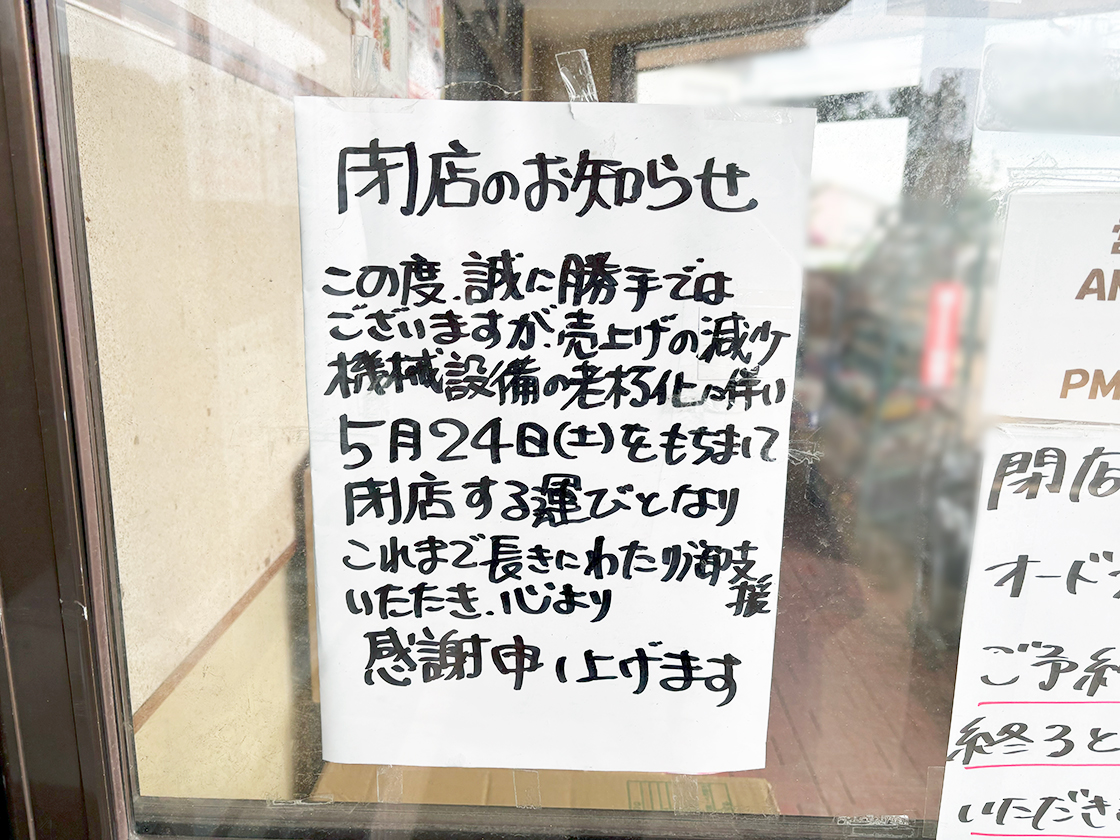 閉店のお知らせ
この度、誠に勝手では
ございますが、売上げの減少
機械設備の老朽化に伴い
5月24日(土)をもちまして
閉店する運びとなり
これまで長きにわたり御支援
いただき、心より
感謝申し上げます
AM
PM
閉店
オード
ご予約
終ろと
いただき